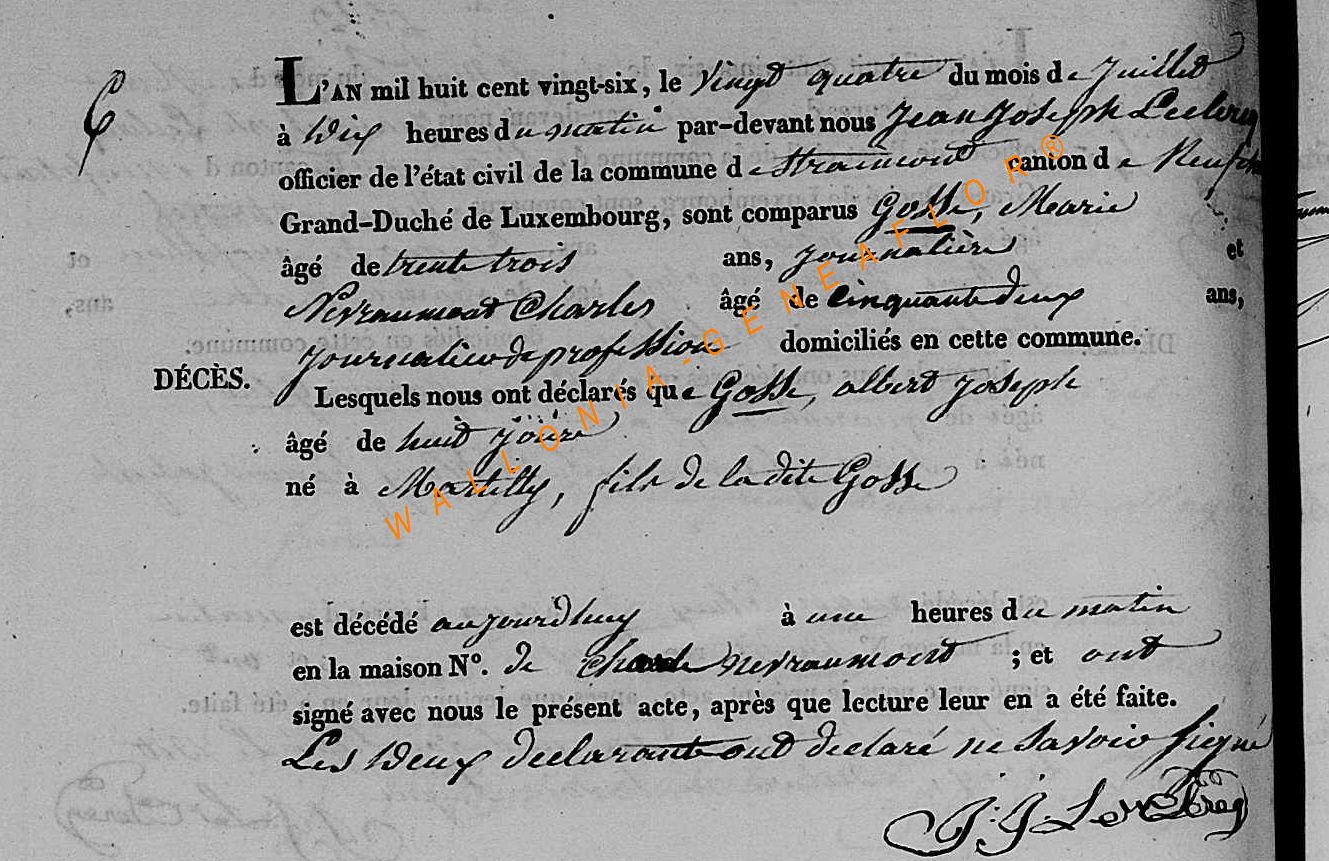 L'AN mil huit cent vingt-six, le vingt quatre du mois de juillet
à dix heures du matin par-devant nous Jean Joseph Leclercq
officier de l'état civil de la commune de Straimont canton de Neufch
Grand-Duché de Luxembourg, sont comparus Gosse, Marie
âgé de trente trois ans, journalière et
Nevraumont Charles âgé de cinquante deux ans,
journalier de profession domiciliés en cette commune.
DÉCÈS.
Lesquels nous ont déclarés que Gosse, albert joseph
âgé de huit jours
né à Martilly, fils de la dite Gosse
est décédé aujourdhuy à une heures du matin
en la maison Nº. de Charle nevraumont ; et ont
signé avec nous le présent acte, après que lecture leur en a été faite.
Les deux declarants ont declaré ne savoir signé
J. J. Leclercq
WALLONIA-GENEAFLOR®